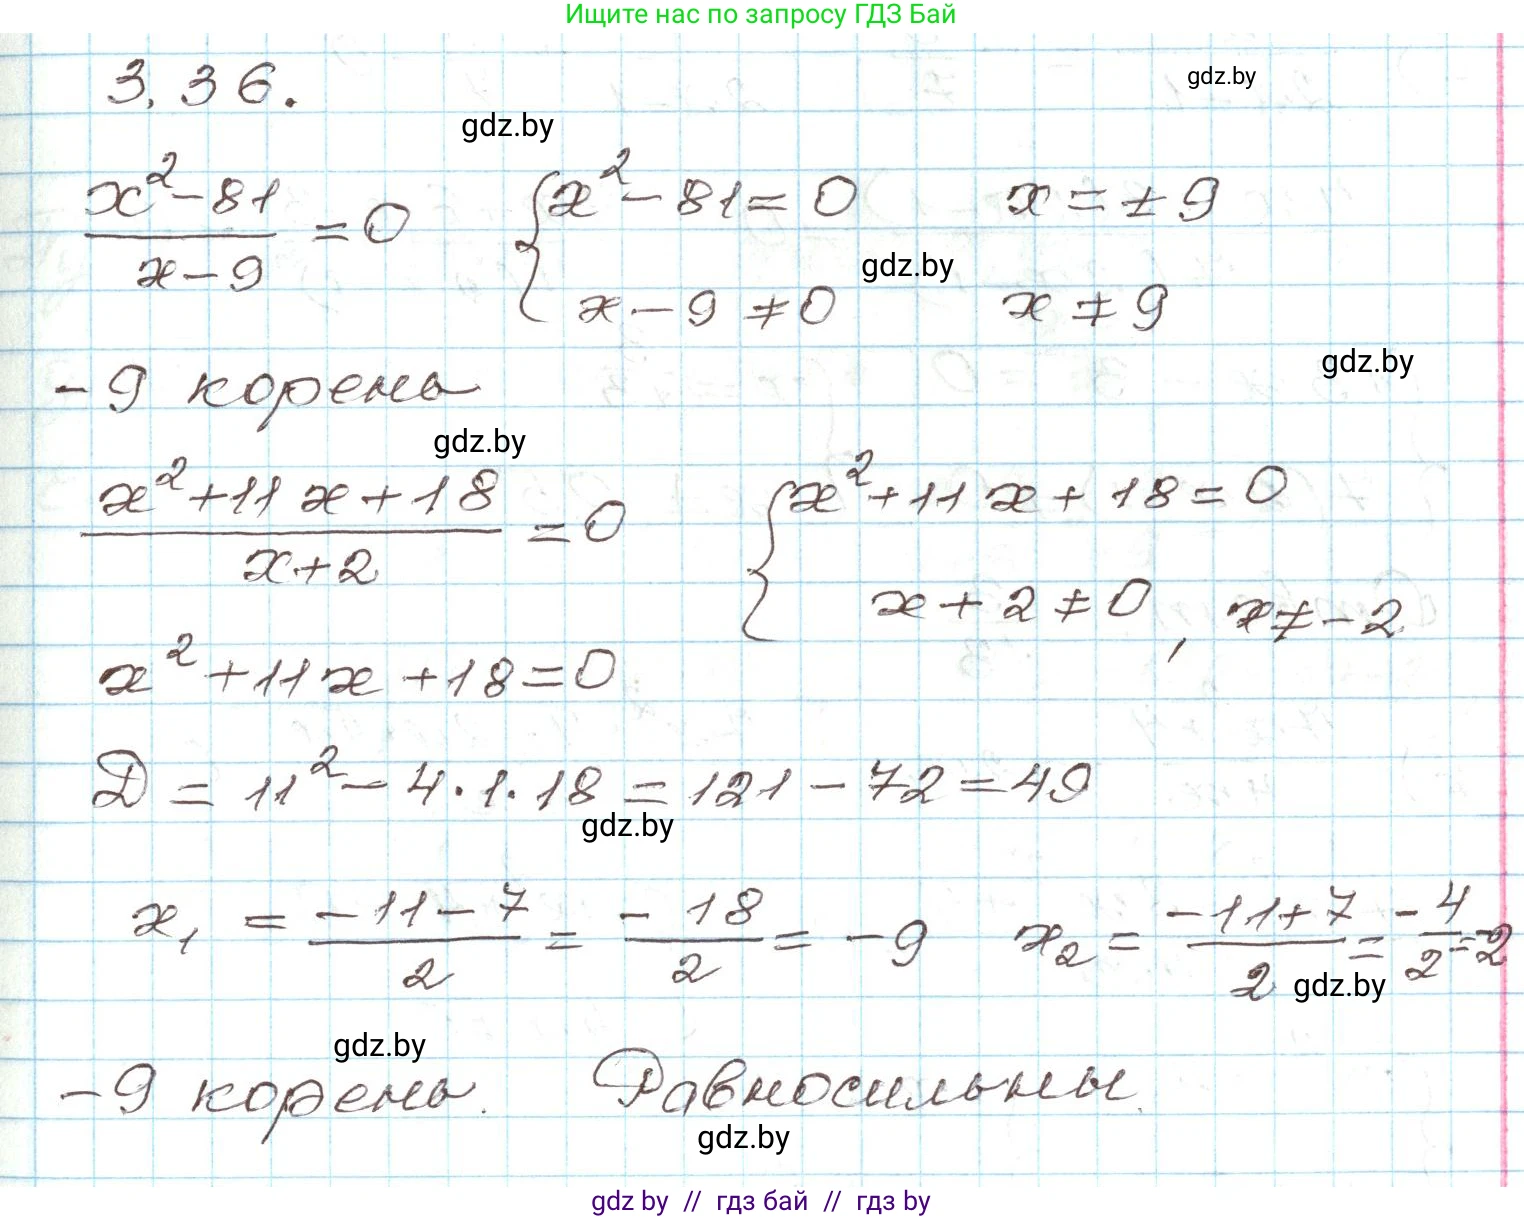 Ищите нас по запросу ГДЗ Бай
3.36.
gdz.by
gdz.by
(x²-81)/(x-9) = 0 { x²-81=0 x=±9
x-9≠0 x≠9
gdz.by
gdz.by
-9 корень
gdz.by
(x²+11x+18)/(x+2) = 0 { x²+11x+18=0
x+2≠0, x≠-2
x²+11x+18=0
Д = 11² - 4·1·18 = 121 - 72 = 49
gdz.by
x₁ = (-11-7)/2 = -18/2 = -9 x₂ = (-11+7)/2 = -4/2 = -2
gdz.by
gdz.by
-9 корень. Равносильны.
gdz.by
gdz by // гдз бай // гдз by